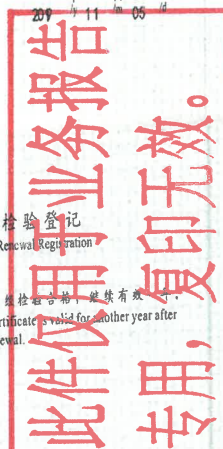 209 /y 11 /m 05 /d
检验登记
Renewal Registration
经检验合格，继续有效一年。
ertificate is valid for another year after
ewal.
此件仅用于业务报告
专用，复印无效。